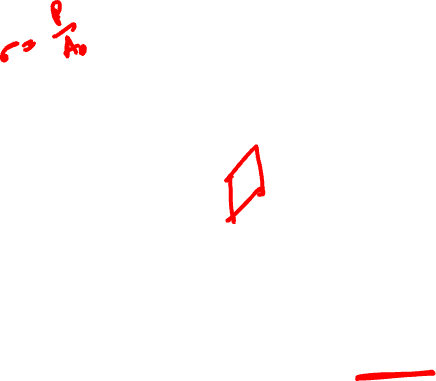 σ = P/A₀